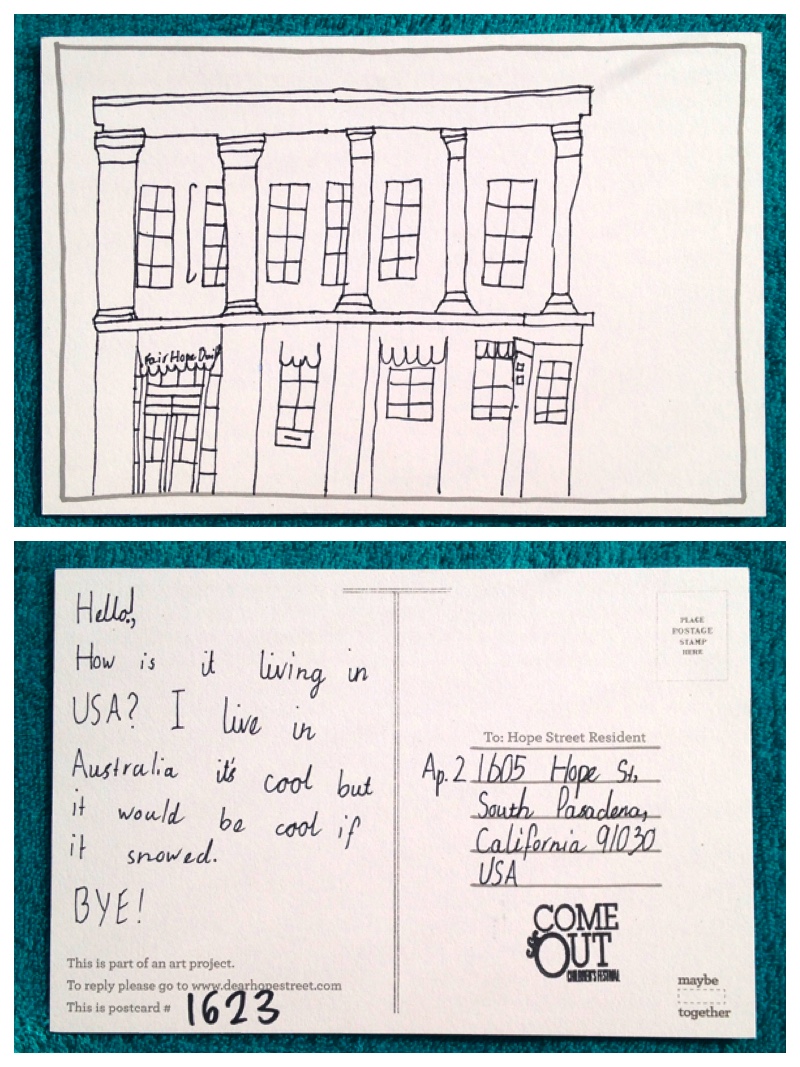 Fair Hope
Hello!,
How is it living in
USA? I live in
Australia it's cool but
it would be cool if
it snowed.
BYE!
This is part of an art project.
To reply please go to www.dearhopestreet.com
This is postcard # 1623
PLACE
POSTAGE
STAMP
HERE
To: Hope Street Resident
Ap. 2 1605 Hope St,
South Pasadena,
California 91030
USA
COME
OUT
CHILDREN'S FESTIVAL
maybe
together